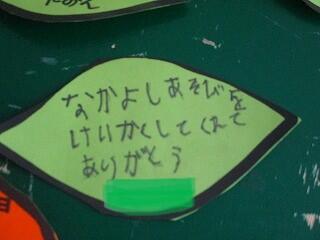 なかよしあそびを
けいかくしてくれて
ありがとう